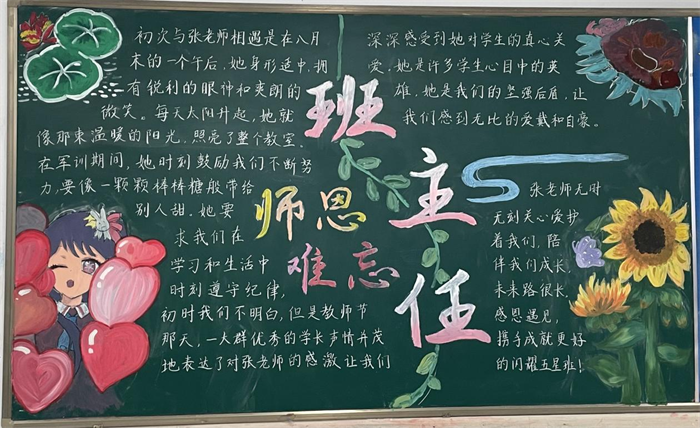 班主任
师恩
难忘
初次与张老师相遇是在八月
末的一个午后,她身形适中,拥
有锐利的眼神和爽朗的
微笑。每天太阳升起,她就
像那束温暖的阳光,照亮了整个教室。
在军训期间,她时刻鼓励我们不断努
力,要像一颗颗棒棒糖般带给
别人甜。她要
求我们在
学习和生活中
时刻遵守纪律,
初时我们不明白,但是教师节
那天,一大群优秀的学长声情并茂
地表达了对张老师的感激,让我们
深深感受到她对学生的真心关
爱,她是许多学生心目中的英
雄,她是我们的坚强后盾,让
我们感到无比的爱戴和自豪。
张老师无时
无刻关心爱护
着我们,陪
伴我们成长,
未来路很长,
感恩遇见,
携手成就更好
的闪耀五星班!